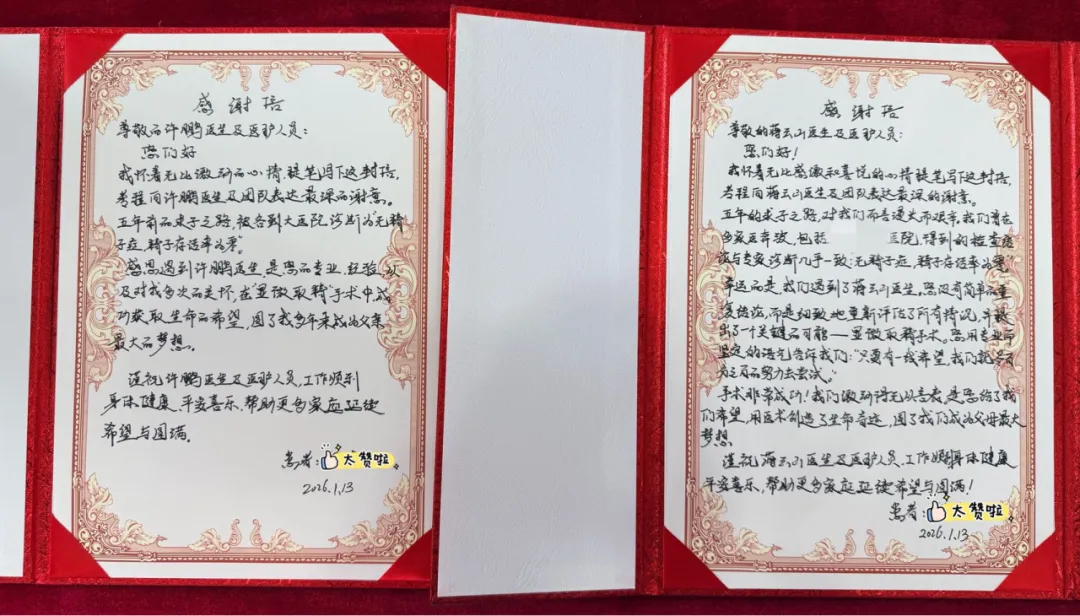 感谢信
尊敬的许鹏医生及医护人员：
您们好
我怀着无比激动的心情，提笔写下这封信，
专程向许鹏医生及团队表达最深的谢意。
五年前的求子之路，被各到大医院，诊断为“无精
子症，精子存活率为零”。
感恩遇到许鹏医生，是您的专业，经验以
及对我多次的关怀，在“显微取精”手术中成
功获取生命的希望，圆了我多年来成为父亲
最大的梦想。
谨祝许鹏医生及医护人员，工作顺利
身体健康，平安喜乐，帮助更多家庭延续
希望与圆满。
患者：太赞啦
2026.1.13
感谢信
尊敬的蒋云山医生及医护人员：
您们好！
我怀着无比感激和喜悦的心情提笔写下这封信，
专程向蒋云山医生及团队表达最深的谢意。
五年的求子之路，对我们而言漫长而艰辛。我们曾在
多家医奔波，包括 医院，得到的检查
与专家诊断几乎一致：“无精子症，精子存活率为零”
幸运的是，我们遇到了蒋云山医生。您没有简单的重
复结论，而是细致地重新评估了所有情况，并
出了一个关键的可能——显微取精手术。您用专业而
坚定的语气告诉我们：“只要有一线希望，我们就
的努力去尝试。”
手术非常成功！我们激动得无以言表，是您给了我
们希望，用医术创造了生命奇迹，圆了我们成为父母最大
梦想
谨祝蒋云山医生及医护人员，工作顺利身体健康
平安喜乐，帮助更多家庭延续希望与圆满！
患者：太赞啦
2026.1.13